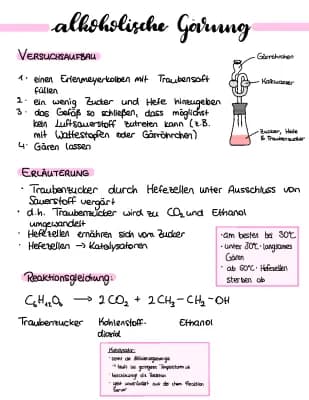 alkoholische Gärung
VERSUCHSAUFBAU
1. einen Erlenmeyerkolben mit Traubensaft
füllen
2. ein wenig Zucker und Hefe hinzugeben
3. das Gefäß so schließen, dass möglichst
kein Luftsauerstoff zutreten kann (z.B.
mit Wattestopfen oder Gärröhrchen)
4. Gären lassen
Gärröhrchen
Kalkwasser
Zucker, Hefe
& Traubensaft
ERLÄUTERUNG
· Traubenzucker durch Hefezellen unter Ausschluss von
Sauerstoff vergärt
· d.h. Traubenzucker wird zu CO2 und Ethanol
umgewandelt
· Hefezellen ernähren sich vom Zucker
· Hefezellen → Katalysatoren
· am besten bei 30°C
· unter 30°C langsames
Gären
· ab 60°C Hefezellen
sterben ab
Reaktionsgleichung:
C6H12O6 → 2 CO2 + 2 CH3-CH2-OH
Traubenzucker Kohlenstoff- Ethanol
dioxid
Katalysator:
· senkt die Aktivierungsenergie
→ läuft bei geringerer Temperatur ab
· beschleunigt die Reaktion
· geht unverändert aus der chem. Reaktion
hervor